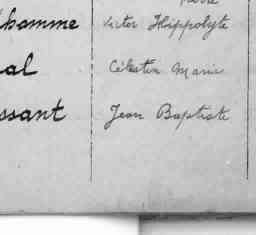 lhomme Victor Hippolyte
al Célestin Marie
ssant Jean Baptiste